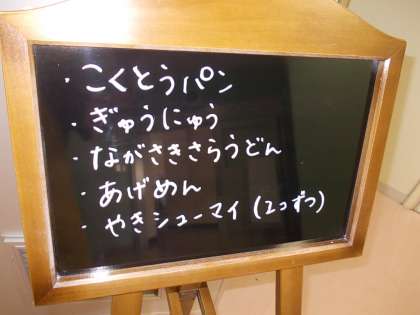 ・こくとうパン
・ぎゅうにゅう
・ながさきさらうどん
・あげめん
・やきシューマイ(2こずつ)